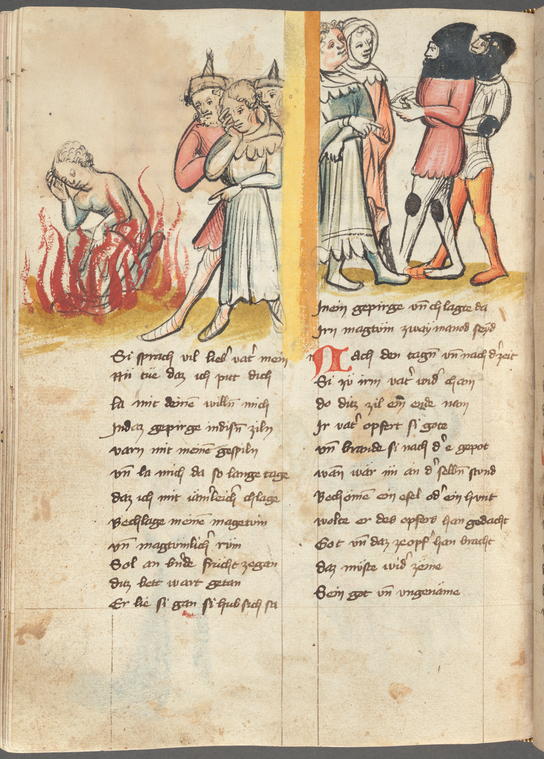 Si sprach vil lieb' vat' mein
Nü tüe daz ich pitt dich
la mit deinē willn mich
In daz gepirge in disn ziln
varn mit meinē gespiln
vn̄ la mich da so lange tage
daz ich mit iām'leich' chlage
Bechlage meinē magetvm
vn̄ magtvmlich' rvm
Sol an end' frücht zegan
ditz bett wart getan
Er lie si gan si hub sich sa
In ein gepirge vn̄ chlagte da
Irn magtvm zway manod seyd
Nach den tagn vn̄ nach d' zeit
Si zv irm vat' wid' cham
do ditz zil ein ende nam
Ir vat' opfert si gote
vn̄ brande si nach d'e gepot
wan wär im an d' selbn stvnd
Bechomē ein esel od' ein hvnt
wolte er des opfers han gedacht
Got vn̄ daz ze opf' han bracht
daz müste wid' zēme
Sein got vn̄ vngenäme